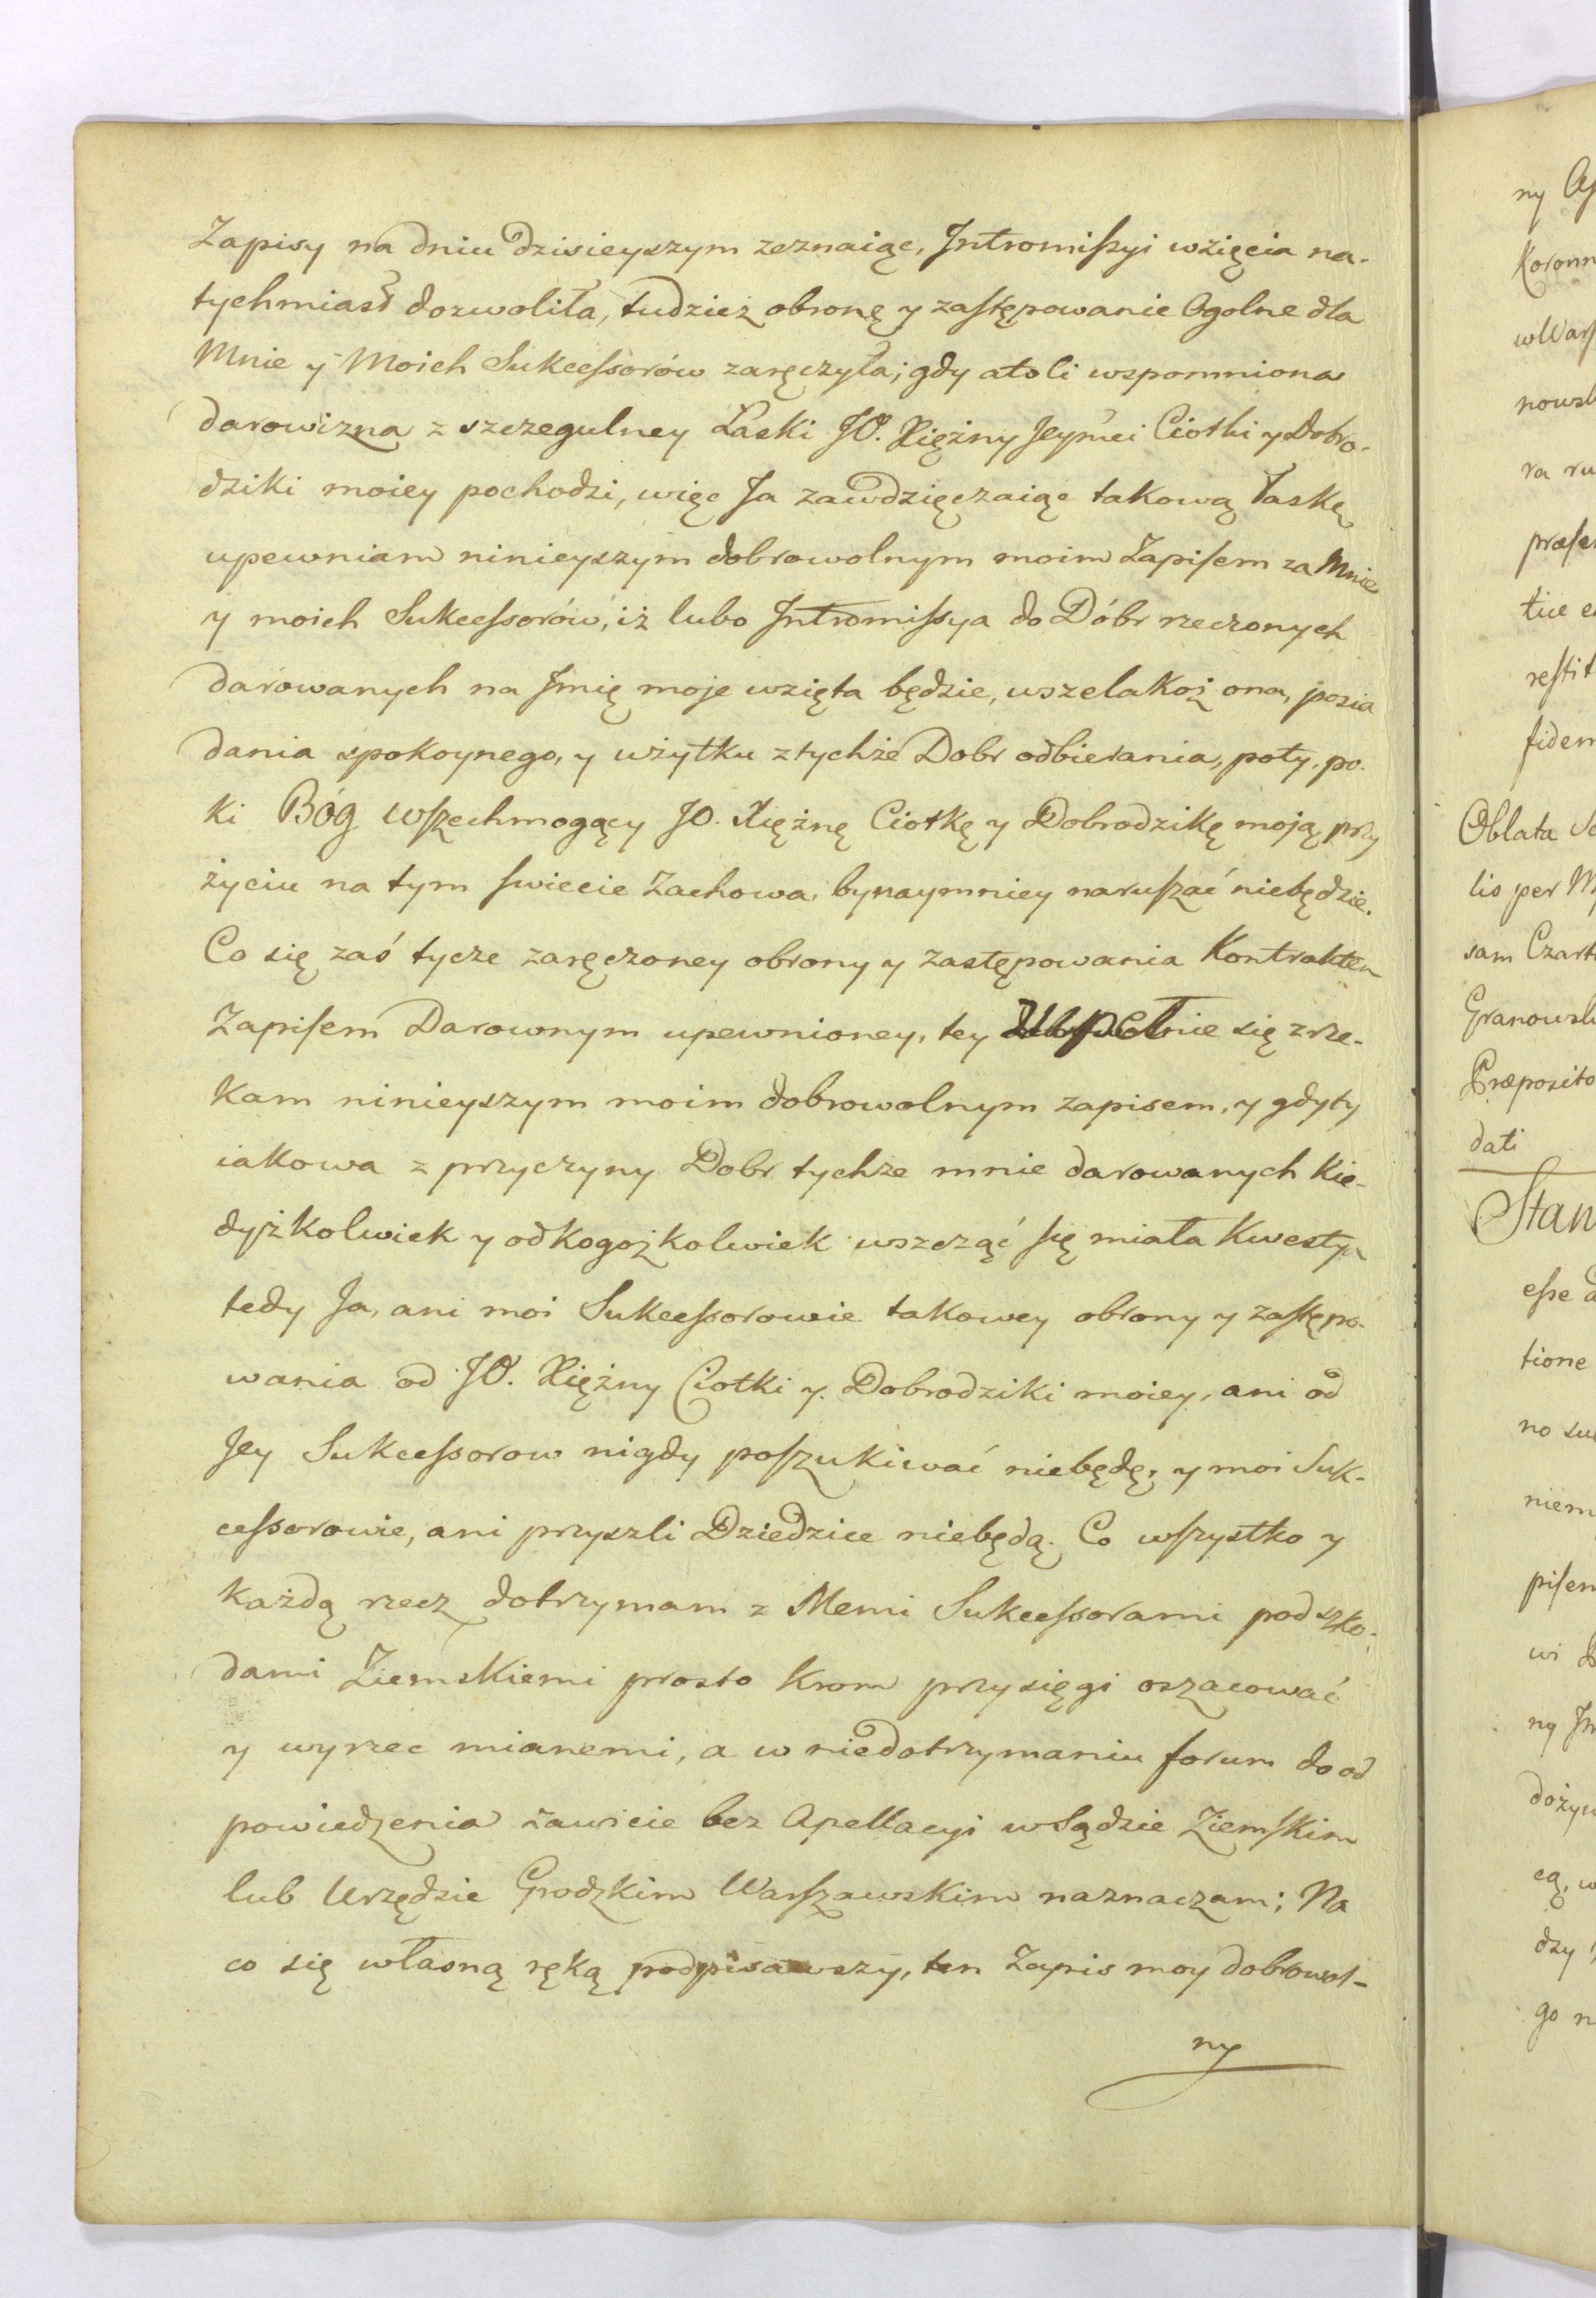 Zapisy na dniu dzisieyszym zeznaiąc, Intromissyi wzięcia na-
tychmiast dozwoliła, tudzież obronę y zastępowanie Ogolne dla
Mnie y Moich Sukcessorów zaręczyła; gdy atoli wspomniona
darowizna z szczegulney Łaski JO. Xiężny Jeymci Ciotki y Dobro-
dziki moiey pochodzi, więc Ja zawdzięczaiąc takową łaskę
upewniam ninieyszym dobrowolnym moim Zapisem za Mnie
y moich Sukcessorów, iż lubo Intromissya do Dóbr rzeczonych
darowanych na Imię moje wzięta będzie, wszelakoż ona, posia
dania spokoynego, y użytku z tychże Dobr odbierania, poty, po-
ki Bóg Wszechmogący JO. Xiężnę Ciotkę y Dobrodzikę moją przy
życiu na tym swiecie Zachowa, bynaymniey naruszać niebędzie.
Co się zaś tycze zaręczoney obrony y zastępowania Kontraktem
Zapisem Darownym upewnioney, tey zupełnie się zrze-
kam ninieyszym moim dobrowolnym zapisem, y gdyby
iakowa z przyczyny Dobr tychże mnie darowanych kie-
dyżkolwiek y odkogożkolwiek wszcząć się miała Kwestya
tedy Ja, ani moi Sukcessorowie takowey obrony y zastępo-
wania od JO. Xiężny Ciotki y Dobrodziki moiey, ani od
Jey Sukcessorow nigdy poszukiwać niebędę, y moi Suk-
cessorowie, ani przyszli Dziedzice niebędą. Co wszystko y
każdą rzecz dotrzymam z Memi Sukcessorami pod szko-
dami Ziemskiemi prosto krom przysięgi oszacować
y wyrzec mianemi, a w niedotrzymaniu forum do od
powiedzenia zawicie bez Apellacyi w Sądzie Ziemskim
lub Urzędzie Grodzkim Warszawskim naznaczam; Na
co się własną ręką podpisawszy, ten Zapis moy dobrowol-
ny
ny
Koronn
nowsk
ra ru
restit
fidem
Oblata
lio per
sam Czart
Granowsk
Præposito
dati
Stan
esse
tione
niem
pisem
dzy
go n